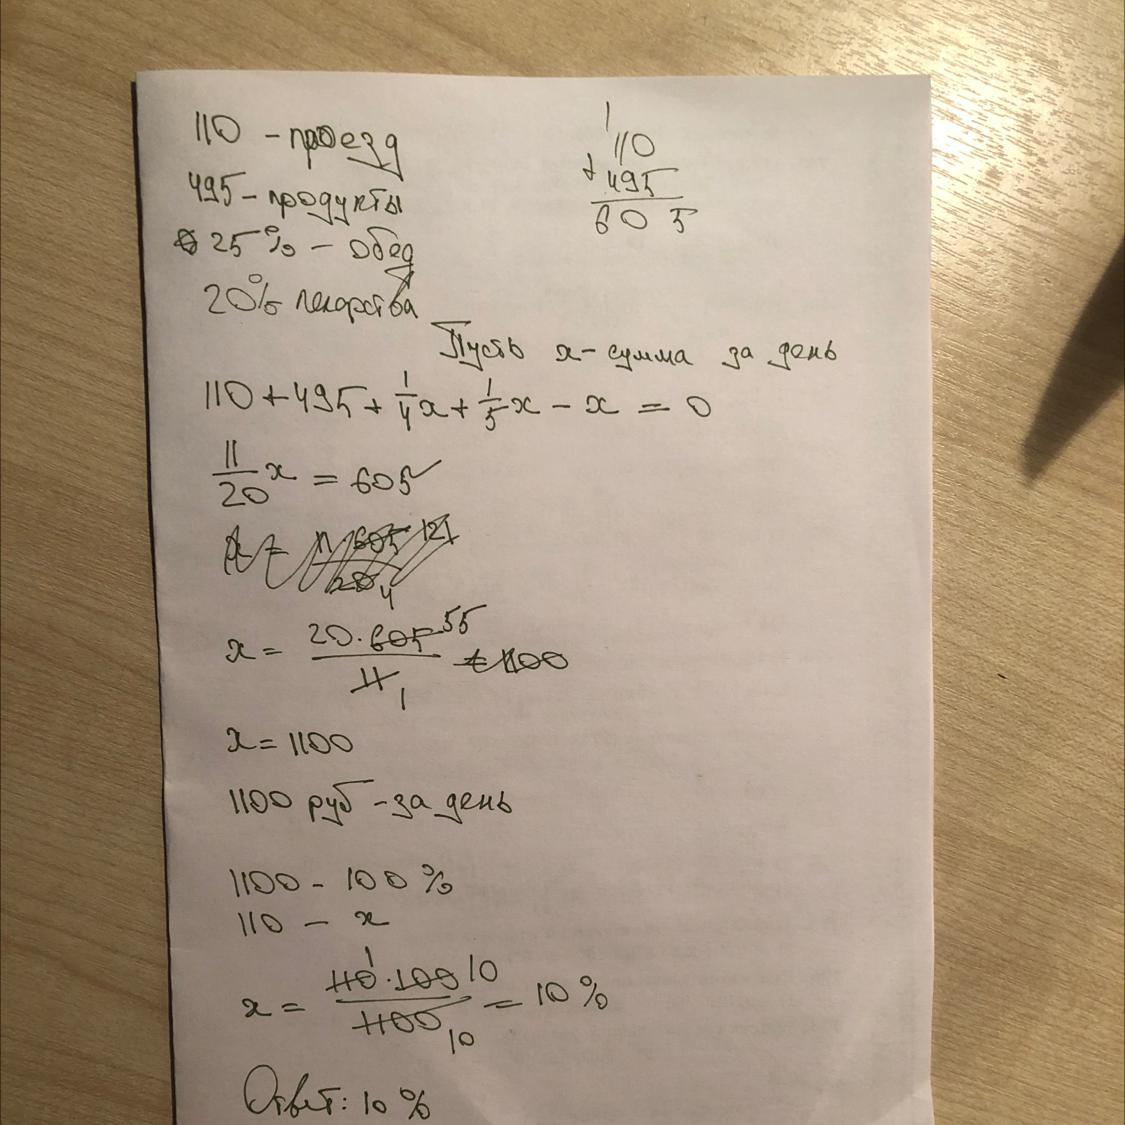 110 - проезд
495 - продукты
25% - обед
20% лекарства
1
110
+ 495
605
Пусть x - сумма за день
110 + 495 + 1/4 x + 1/5 x - x = 0
11/20 x = 605
x = 20 · 605 55 / 11 1 = 1100
x = 1100
1100 руб - за день
1100 - 100%
110 - x
x = 110 1 · 100 10 / 1100 10 = 10%
Ответ: 10%